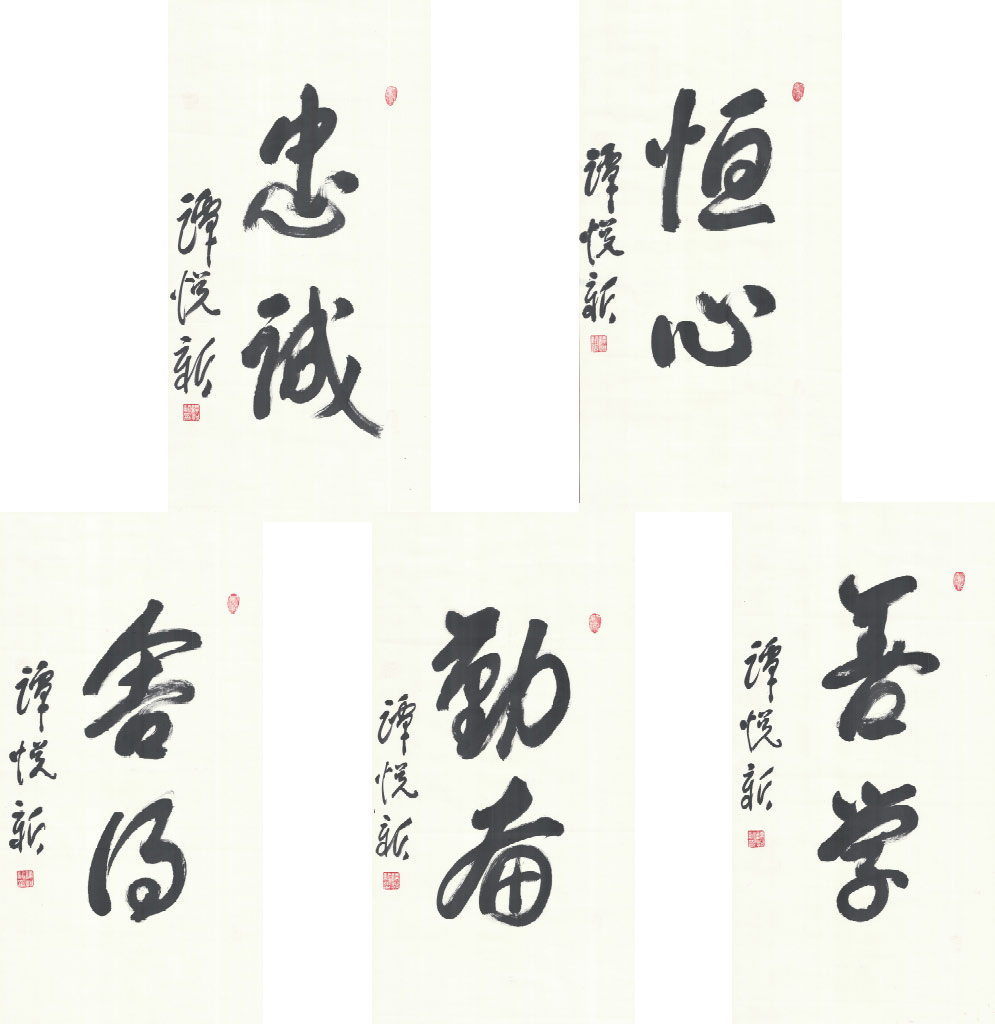 忠诚
谭悦新
恒心
谭悦新
舍得
谭悦新
勤奋
谭悦新
善学
谭悦新